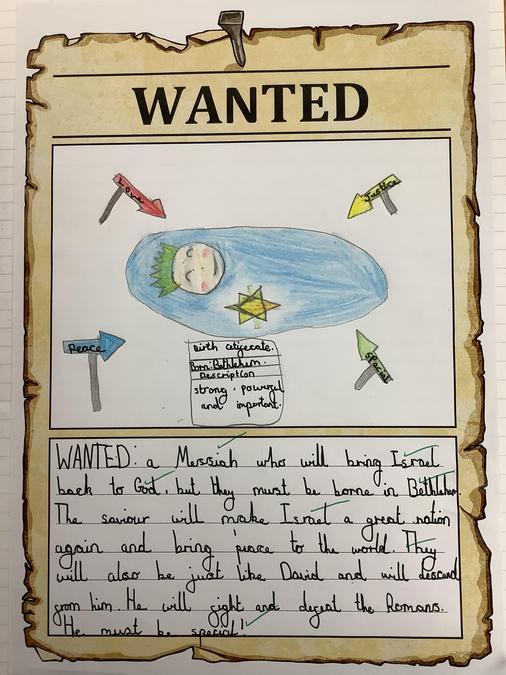 WANTED
Love
Justice
Peace
Special
Birth citifecate.
Born: Bethlehem.
Description
strong, powerful
and important.
WANTED: a Messiah who will bring Israel
back to God, but they must be borne in Bethlehem.
The saviour will make Israel a great nation
again and bring peace to the world. They
will also be just like David and will descend
from him. He will fight and defeat the Romans.
He must be special!